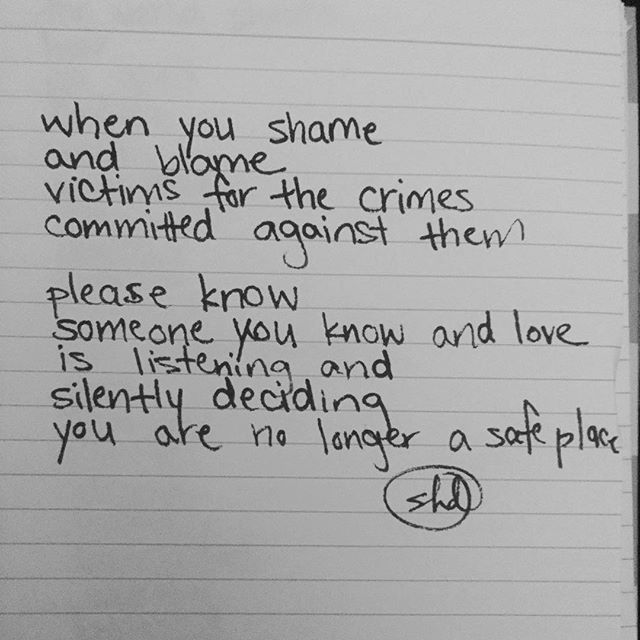 when you shame
and blame
victims for the crimes
committed against them
please know
someone you know and love
is listening and
silently deciding
you are no longer a safe place
shd